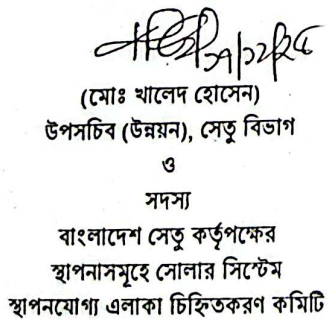 (মোঃ খালেদ হোসেন)
উপসচিব (উন্নয়ন), সেতু বিভাগ
ও
সদস্য
বাংলাদেশ সেতু কর্তৃপক্ষের
স্থাপনাসমূহে সোলার সিস্টেম
স্থাপনযোগ্য এলাকা চিহ্নিতকরণ কমিটি